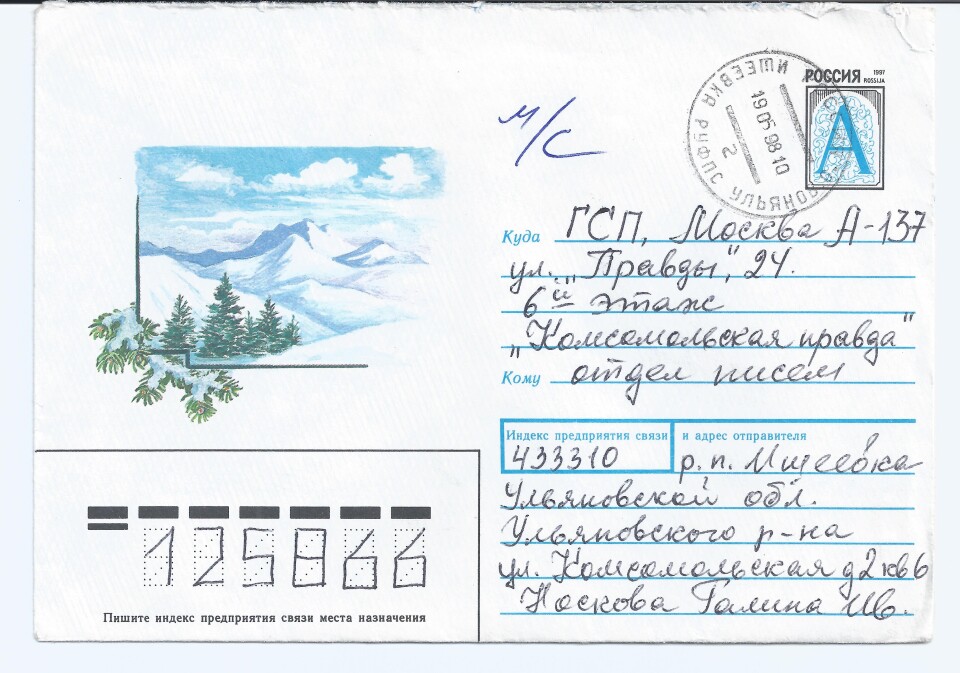 м/с
РОССИЯ 1997
ROSSIJA
А
ИШЕЕВКА РУФПС УЛЬЯНОВ
19 05 98 10
2
Куда ГСП, Москва А-137
ул. „Правды", 24.
6й этаж
„Комсомольская правда"
Кому отдел писем
Индекс предприятия связи и адрес отправителя
433310 р. п. Ишеевка
Ульяновской обл.
Ульяновского р-на
ул. Комсомольская д 2 кв 6
Носкова Галина Ив.
125866
Пишите индекс предприятия связи места назначения